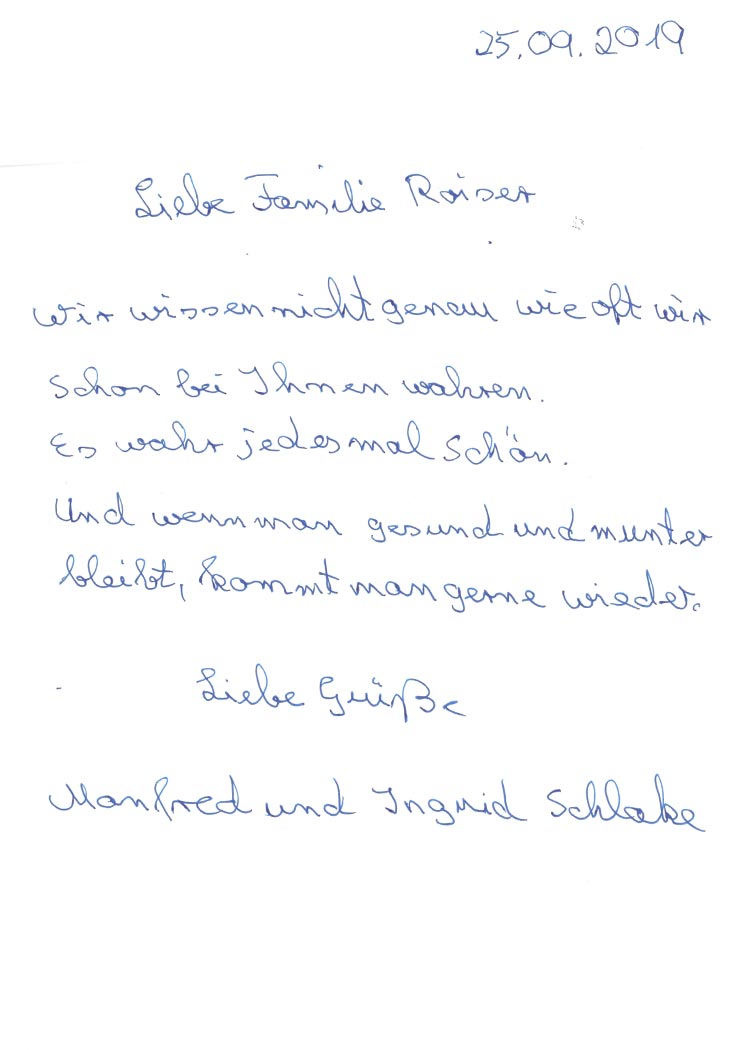 25.09.2019
Liebe Familie Raiser
wir wissen nicht genau wie oft wir
schon bei Ihnen wahren.
Es wahr jedesmal schön.
Und wenn man gesund und munter
bleibt, kommt man gerne wieder.
Liebe Grüße
Manfred und Ingrid Schlake